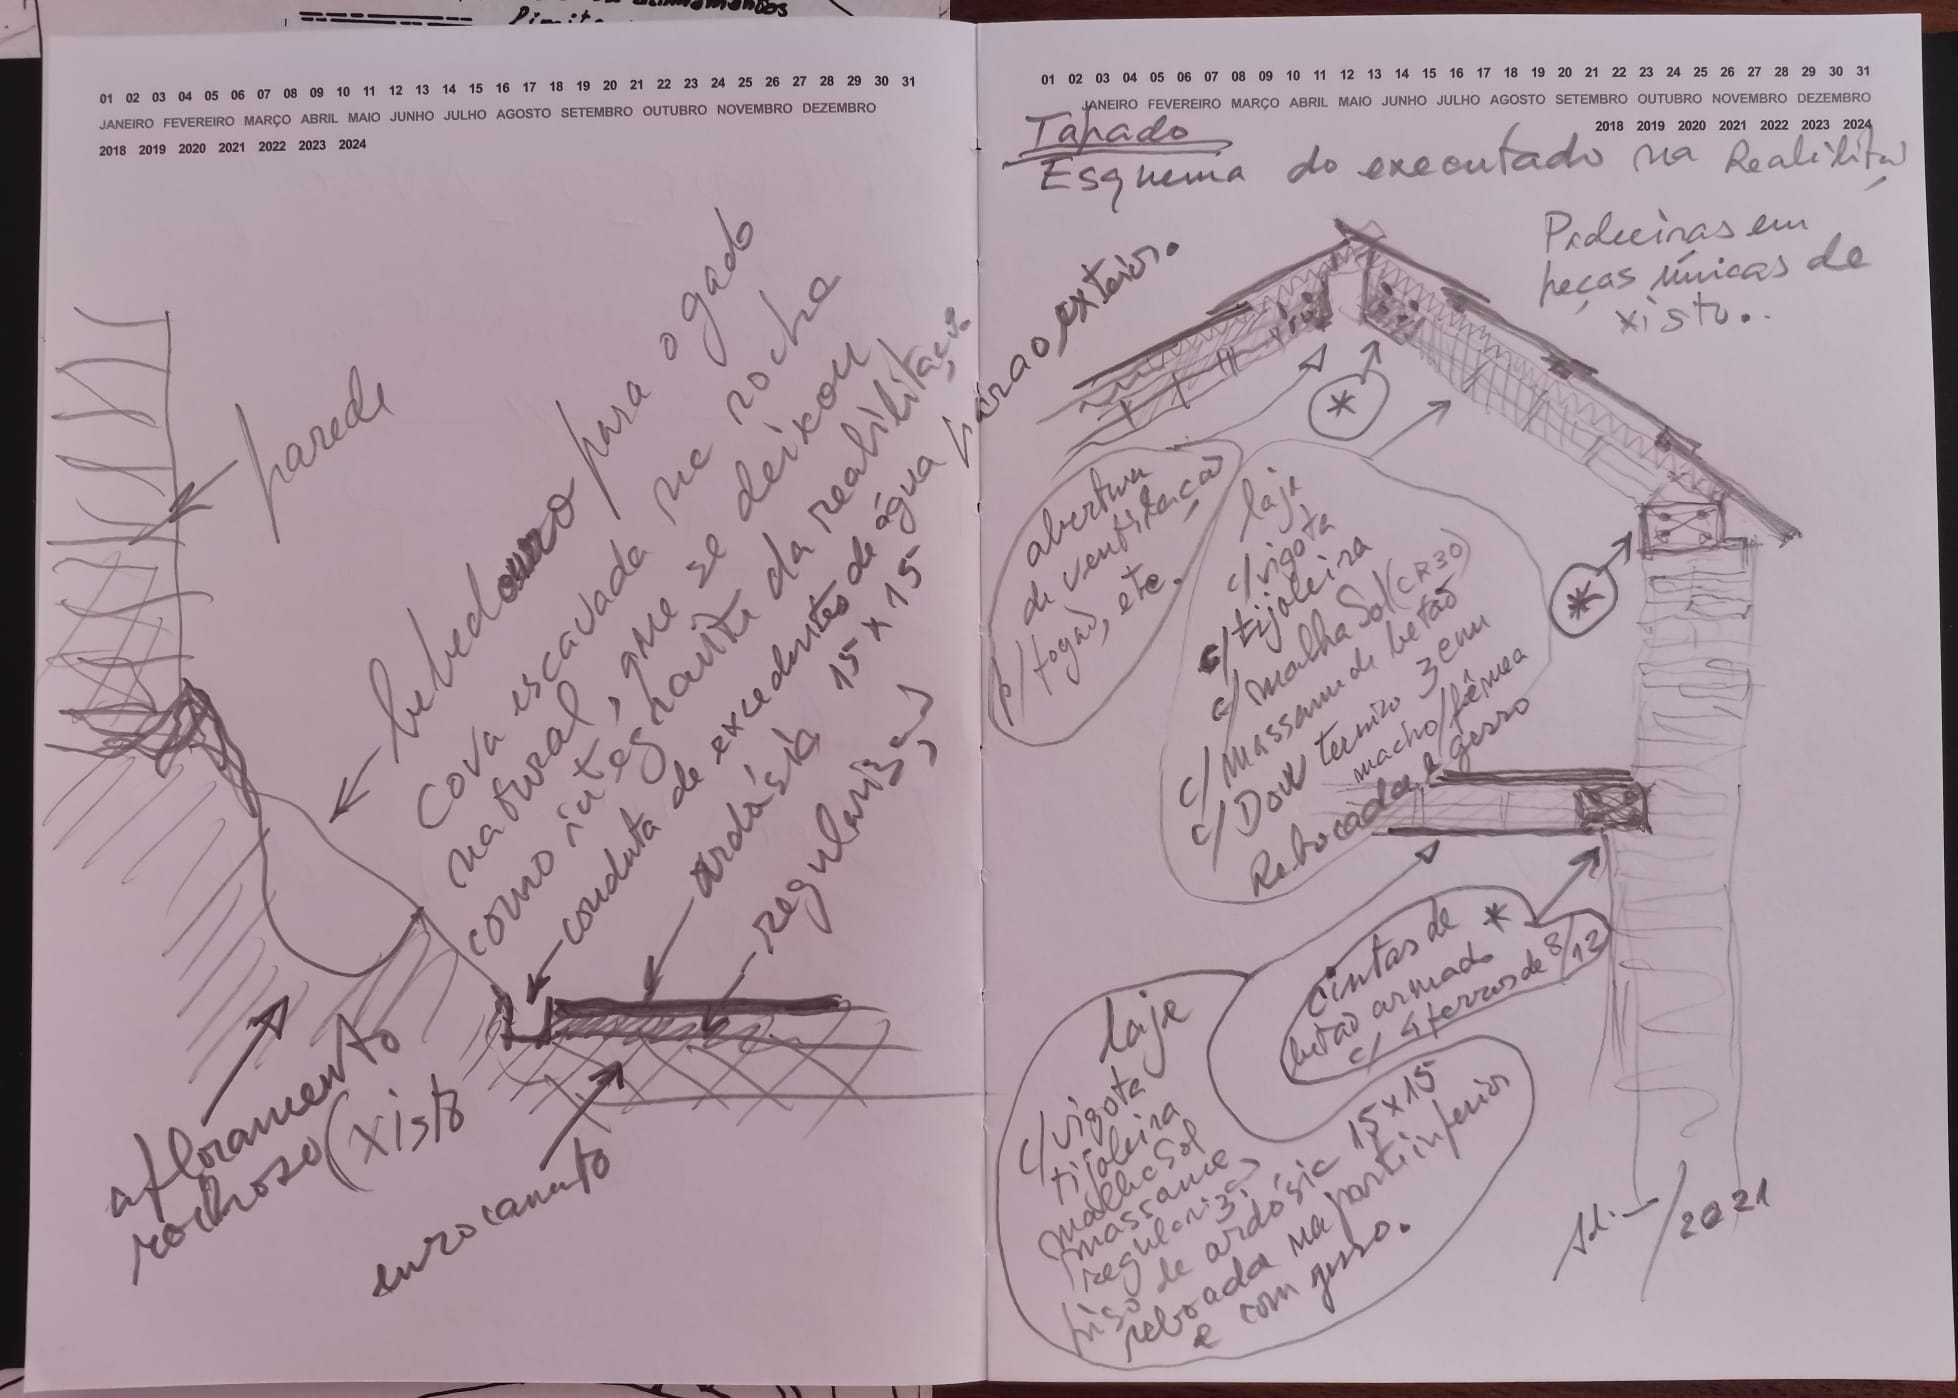 01 02 03 04 05 06 07 08 09 10 11 12 13 14 15 16 17 18 19 20 21 22 23 24 25 26 27 28 29 30 31
JANEIRO FEVEREIRO MARÇO ABRIL MAIO JUNHO JULHO AGOSTO SETEMBRO OUTUBRO NOVEMBRO DEZEMBRO
2018 2019 2020 2021 2022 2023 2024
parede
bebedouro para o gado
cova escavada na rocha
natural, que se deixou
como integrante da realilitação
conduta de excedentes de água para o exterior.
ardósia 15 x 15
regulariz
afloramento
rochoso (xisto
enrocamento
01 02 03 04 05 06 07 08 09 10 11 12 13 14 15 16 17 18 19 20 21 22 23 24 25 26 27 28 29 30 31
JANEIRO FEVEREIRO MARÇO ABRIL MAIO JUNHO JULHO AGOSTO SETEMBRO OUTUBRO NOVEMBRO DEZEMBRO
2018 2019 2020 2021 2022 2023 2024
Tapado
Esquema do executado na
Padieiras em
peças únicas de
xisto..
*
abertura
de ventilação
p/ fogão, etc.
laje
c/ vigota
c/ tijoleira
c/ malha Sol (CR30)
c/ massame de betão
c/ Dow termico 3 cm
macho/fêmea
Rebocada e gesso
*
cintas de *
betão armado
c/ 4 ferros de 8/12
laje
c/ vigota
tijoleira
malha Sol
massame
regulariz
piso de ardósia 15x15
rebocada na parte inferior
e com gesso.
/2021